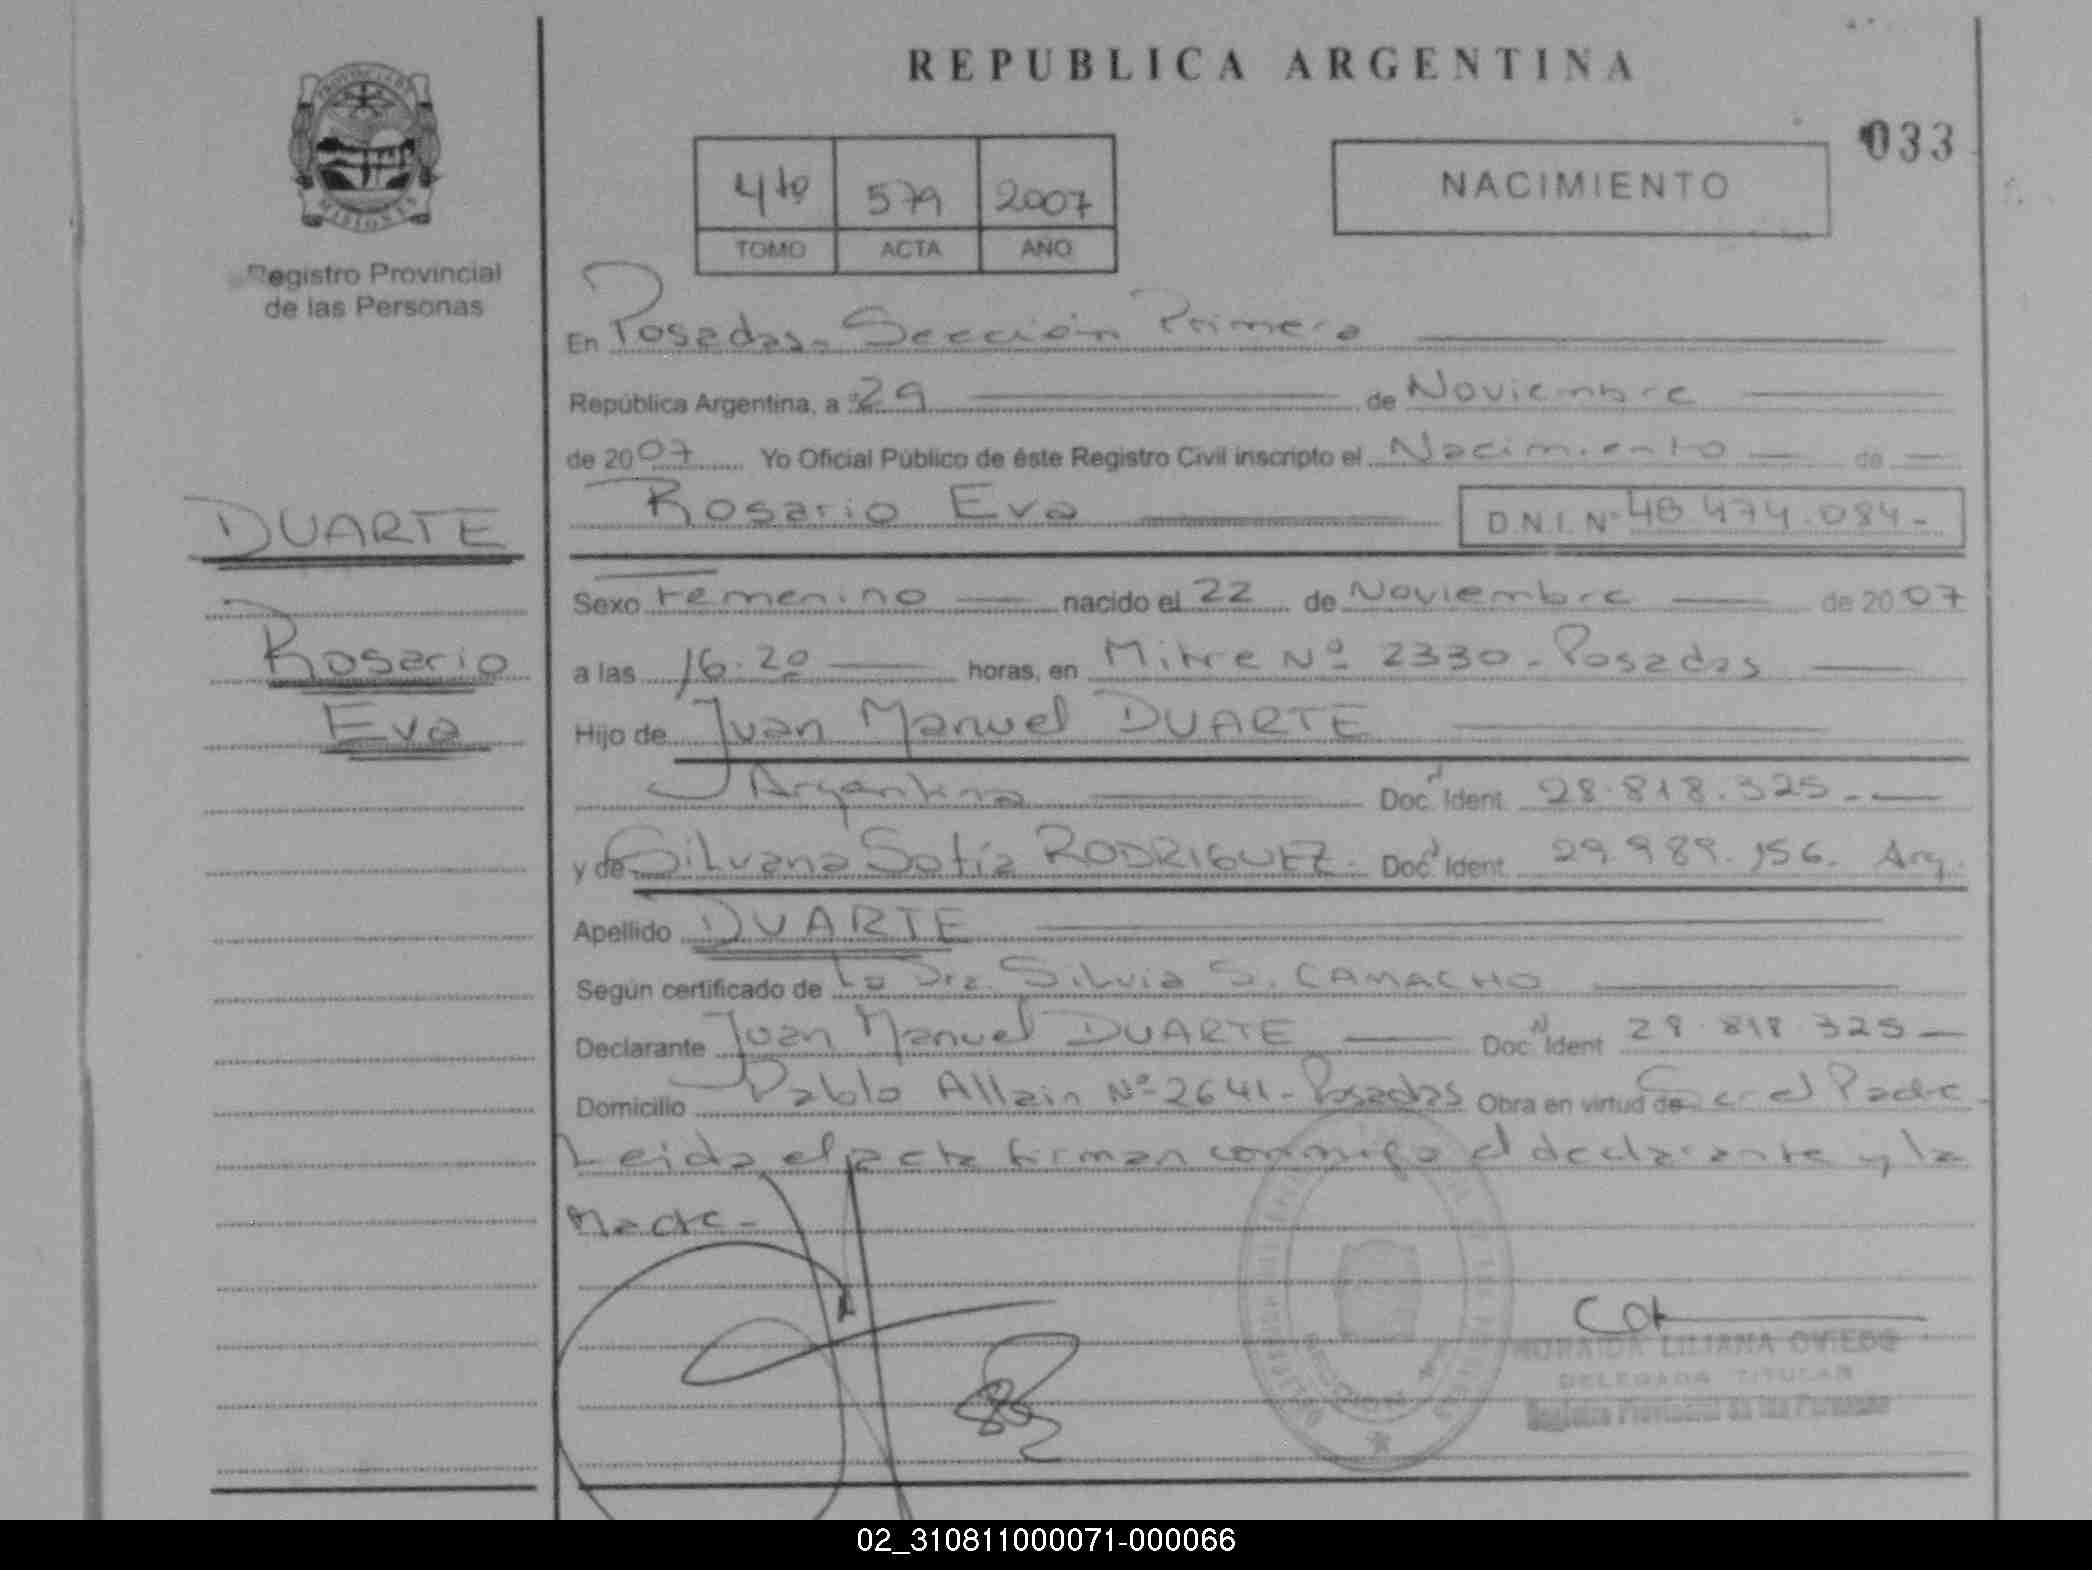 REPUBLICA ARGENTINA
033
NACIMIENTO
4to 579 2007
TOMO ACTA AÑO
PROVINCIA DE MISIONES
Registro Provincial
de las Personas
En Posadas - Sección Primera
República Argentina, a 29 de Noviembre
de 2007 Yo Oficial Público de éste Registro Civil inscripto el Nacimiento de
Rosario Eva D.N.I. Nº 48 474.084-
DUARTE
Rosario
Eva
Sexo Femenino nacido el 22 de Noviembre de 2007
a las 16.20 horas, en Mitre Nº 2330 - Posadas
Hijo de Juan Manuel DUARTE
Argentina Doc. Ident. 28.818.325.-
y de Silvana Sofía RODRIGUEZ. Doc. Ident. 29.989.156. Arg.
Apellido DUARTE
Según certificado de la Dra. Silvia S. CAMACHO
Declarante Juan Manuel DUARTE Doc. Ident. 28.818.325
Domicilio Pablo Allain Nº 2641 - Posadas Obra en virtud de Ser el Padre.
Leida el acta firman conmigo el declarante y la
Madre -
LILIANA OVIEDO
DELEGADA TITULAR
Registro Provincial de las Personas
02_310811000071-000066